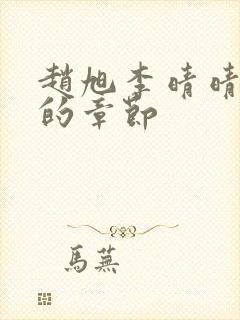 趙旭李晴晴
的章節
馬蕪